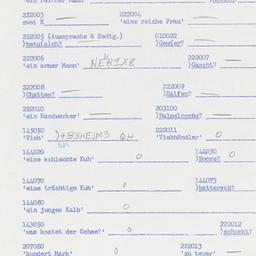 222003 222004
zwei X 'eine reiche Frau'
222005 {Aussprache & Bedtg.} 010022
)betu(al? )Geɛfer?
222006 222007
'ein armer Mann' NEB1X8 )Gäscht?
222008 222009
)Chattes? )Dalfen?
222010 203100
'ein Handwerker' )Balmelooche?
145050 222011
'Vieh' )+83HEJM3 QH 'Viehhändler' 0
144020 144030
'eine schlechte Kuh' 0 )Boore? 0
144070 144073
'eine trächtige Kuh' 0 )battersch?
144080
'ein junges Kalb' 0
143050 222012
'was kostet der Ochse?' 0 )schuckt?
207080 222013
'hundert Mark' 0 'zu teuer'